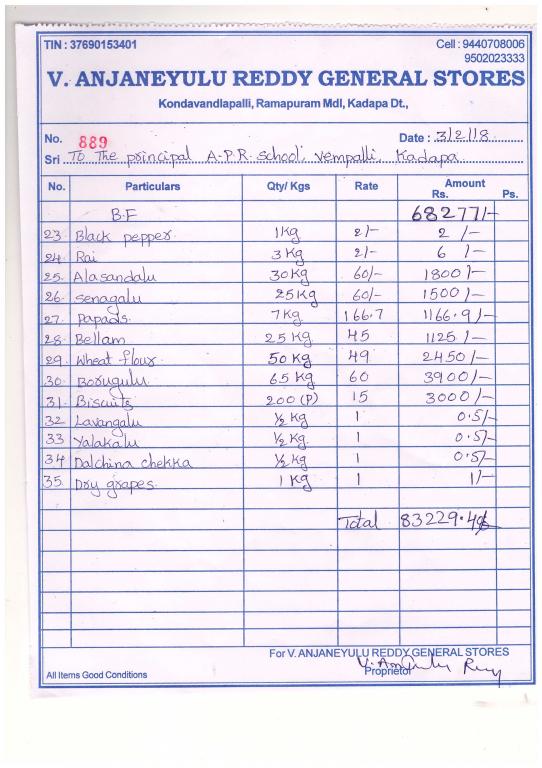 TIN : 37690153401 Cell : 9440708006
9502023333
V. ANJANEYULU REDDY GENERAL STORES
Kondavandlapalli, Ramapuram Mdl, Kadapa Dt.,
No. 889 Date : 3/2/18
Sri To The principal A.P.R. school, vempalli, Kadapa
No. Particulars Qty/ Kgs Rate Amount
Rs. Ps.
B.F 68277/-
23. Black pepper. 1 Kg 2/- 2 /-
24. Rai 3 Kg 2/- 6 /-
25. Alasandalu 30 Kg 60/- 1800/-
26. Senagalu 25 Kg 60/- 1500/-
27. Papads. 7 Kg 166.7 1166.9/-
28. Bellam 25 Kg 45 1125/-
29. Wheat flour. 50 Kg 49 2450/-
30. Borugulu 65 Kg 60 3900/-
31. Biscuits 200 (P) 15 3000/-
32 Lavangalu ½ Kg 1 0.5/-
33 Yalakalu ½ Kg. 1 0.5/-
34 Dalchina chekka ½ Kg 1 0.5/-
35. Dry grapes. 1 Kg 1 1/-
Total
For V. ANJANEYULU REDDY GENERAL STORES
All Items Good Conditions Proprietor